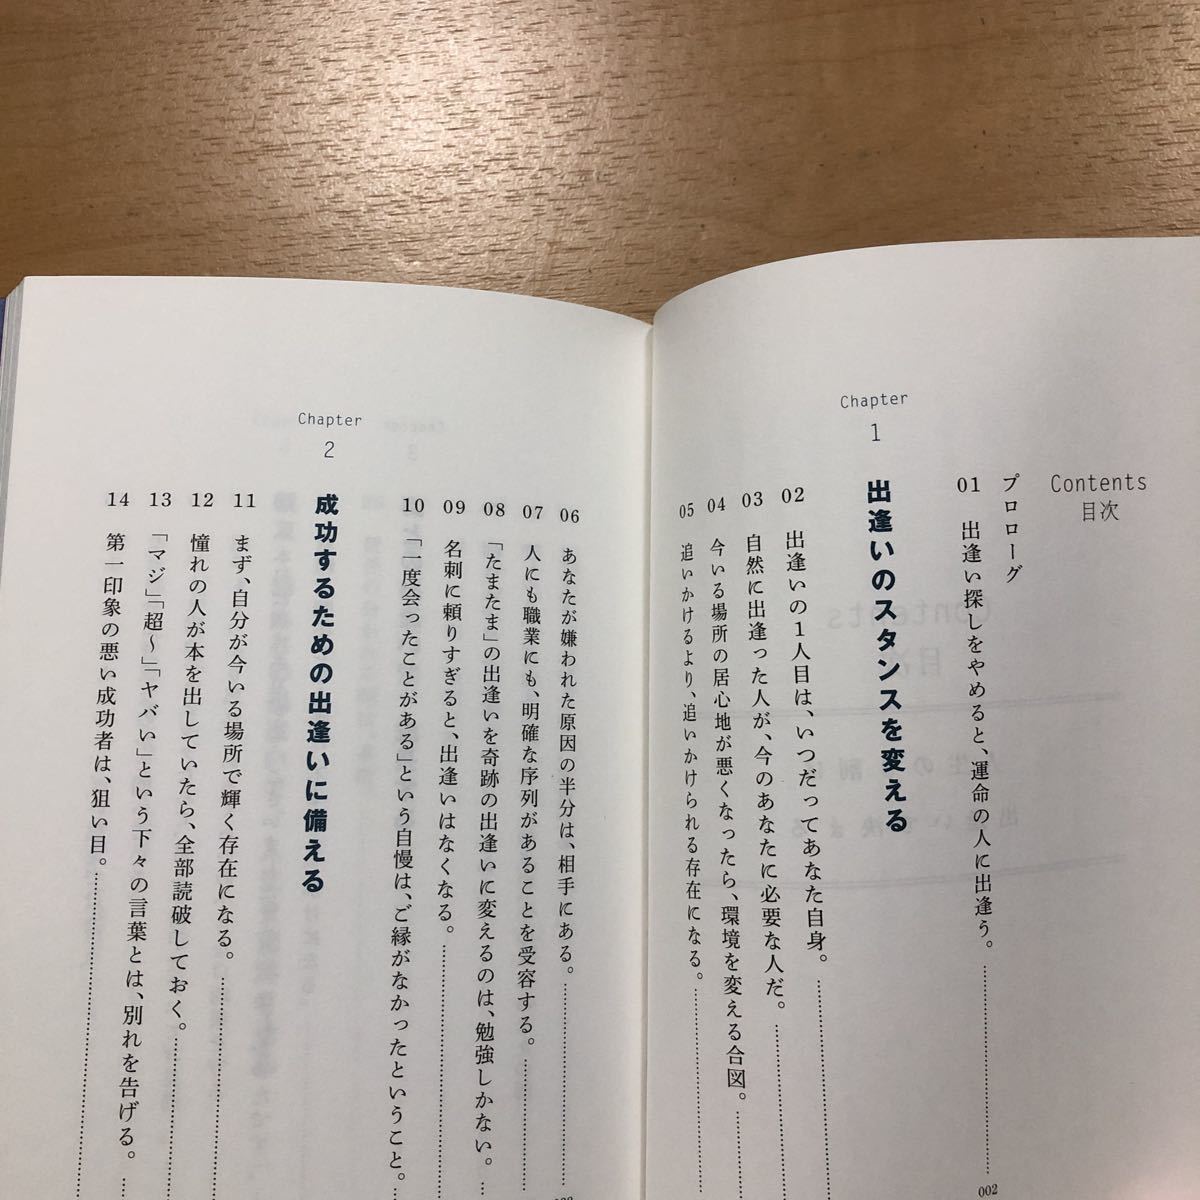 Contents
目次
プロローグ
Chapter
1
出逢いのスタンスを変える
01 出逢い探しをやめると、運命の人に出逢う。 002
02 出逢いの1人目は、いつだってあなた自身。
03 自然に出逢った人が、今のあなたに必要な人だ。
04 今いる場所の居心地が悪くなったら、環境を変える合図。
05 追いかけるより、追いかけられる存在になる。
06 あなたが嫌われた原因の半分は、相手にある。
07 人にも職業にも、明確な序列があることを受容する。
08 「たまたま」の出逢いを奇跡の出逢いに変えるのは、勉強しかない。
09 名刺に頼りすぎると、出逢いはなくなる。
10 「一度会ったことがある」という自慢は、ご縁がなかったということ。
Chapter
2
成功するための出逢いに備える
11 まず、自分が今いる場所で輝く存在になる。
12 憧れの人が本を出していたら、全部読破しておく。
13 「マジ」「超～」「ヤバい」という下々の言葉とは、別れを告げる。
14 第一印象の悪い成功者は、狙い目。